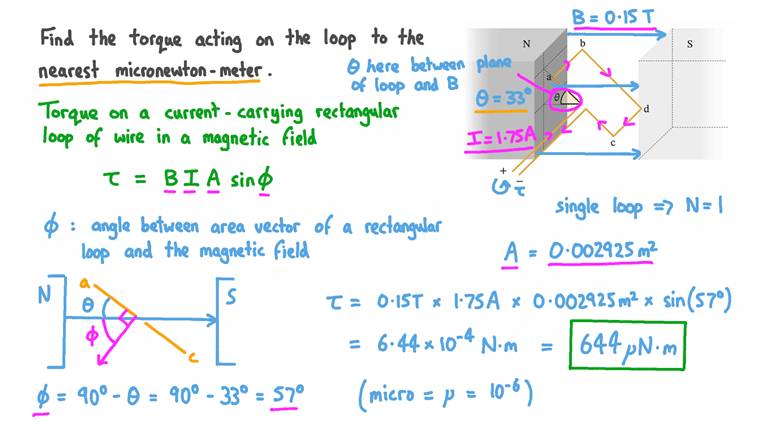 Find the torque acting on the loop to the
nearest micronewton-meter.
Torque on a current-carrying rectangular
loop of wire in a magnetic field
τ = B I A sinϕ
ϕ : angle between area vector of a rectangular
loop and the magnetic field
N
S
a
θ
ϕ
c
ϕ = 90° - θ = 90° - 33° = 57°
B = 0.15 T
N
S
b
a
θ here between plane
of loop and B
θ = 33°
θ
d
I = 1.75A
c
+
−
τ
single loop => N = 1
A = 0.002925 m²
τ = 0.15T × 1.75A × 0.002925m² × sin(57°)
= 6.44 × 10⁻⁴ N·m = 644 μN·m
(micro = μ = 10⁻⁶)